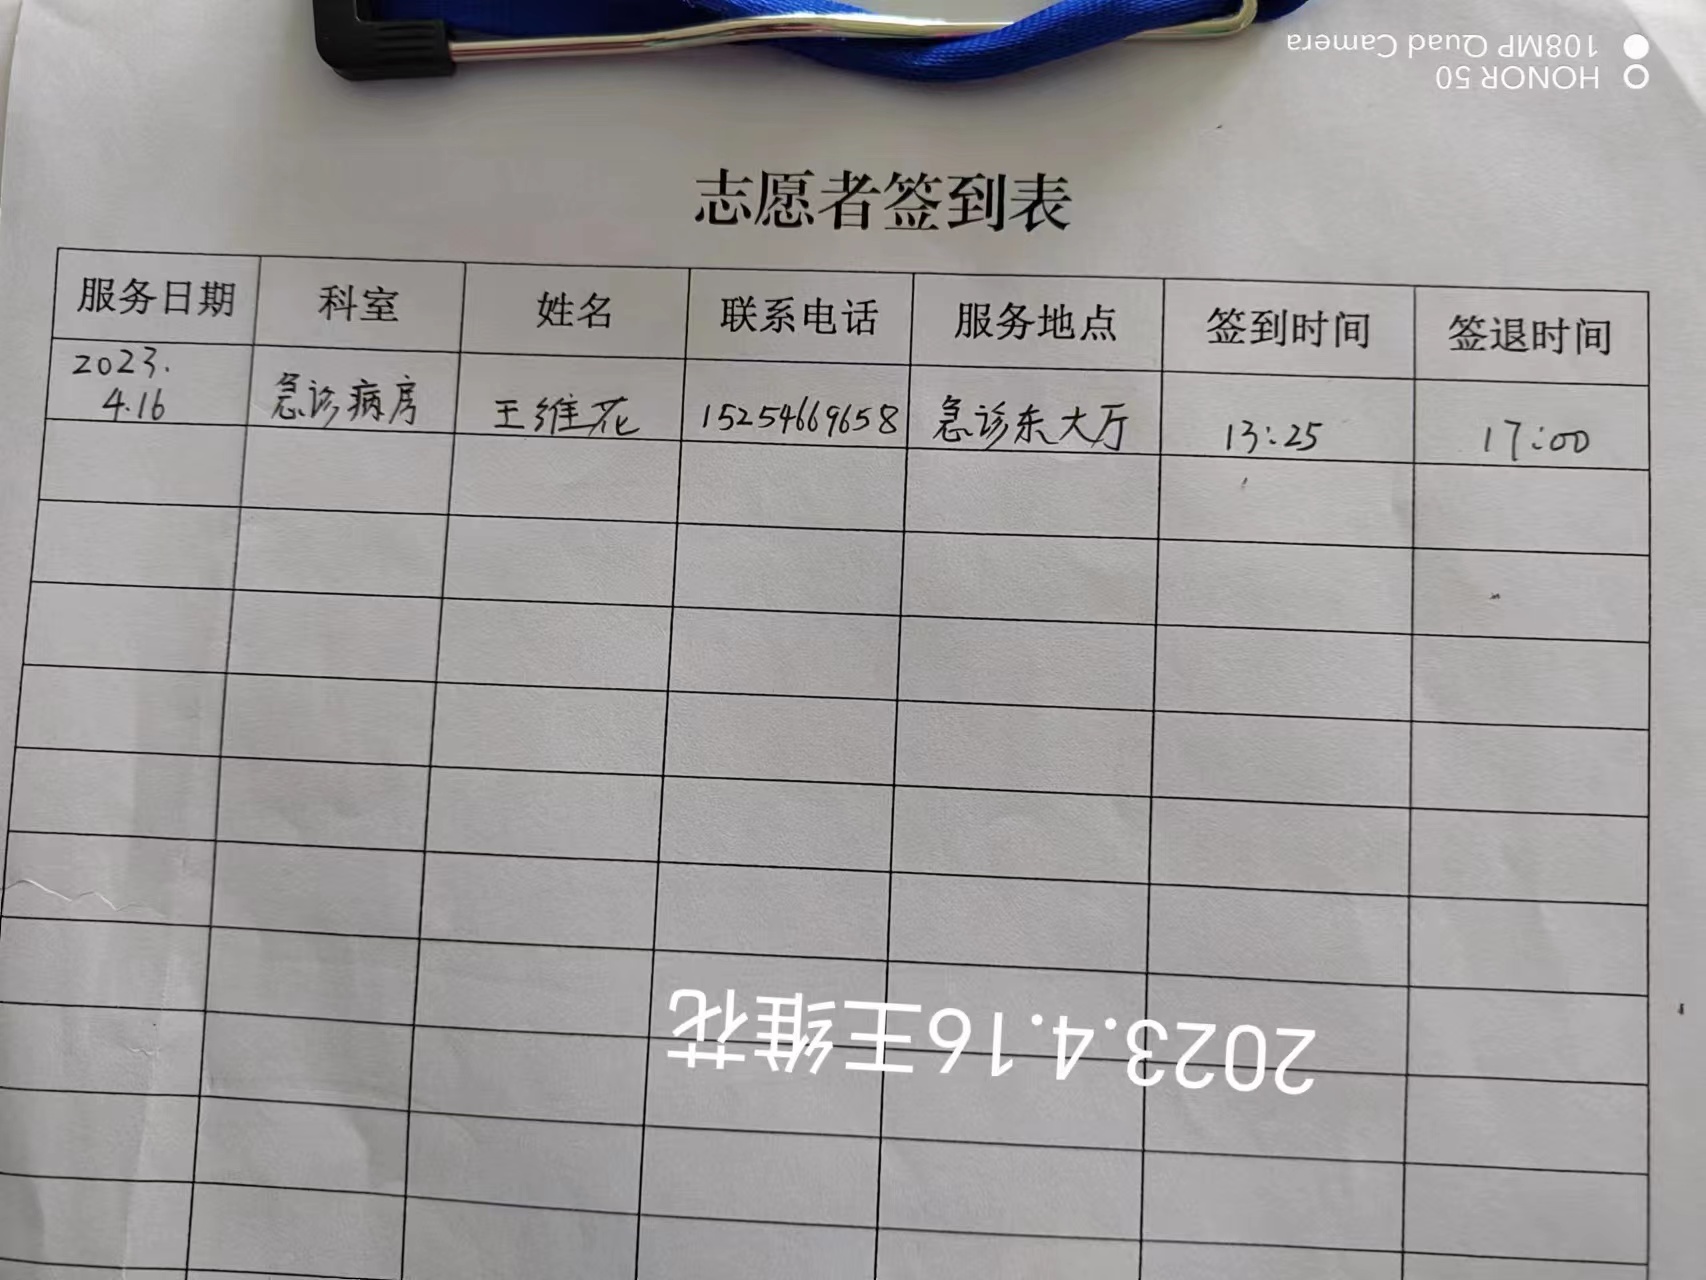 HONOR 50
108MP Quad Camera
志愿者签到表
服务日期 科室 姓名 联系电话 服务地点 签到时间 签退时间
2023.
4.16 急诊病房 王维花 15254669658 急诊东大厅 13:25 17:00
2023.4.16王维花